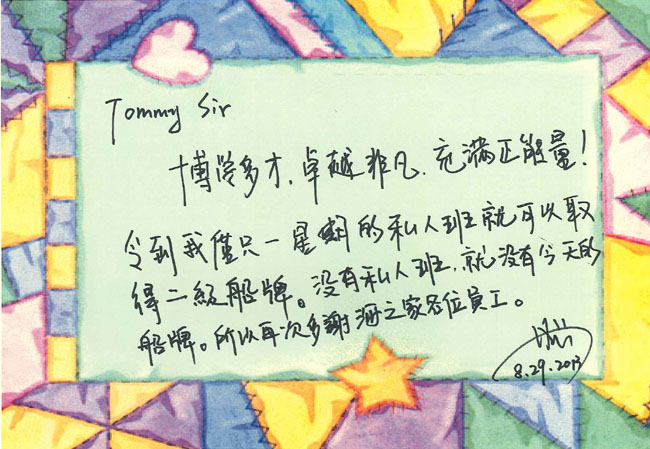 Tommy Sir
博學多才，卓越非凡，充滿正能量！
令到我僅只一星期的私人班就可以取
得二級船牌。没有私人班，就没有今天的
船牌。所以再次多謝海之家各位員工。
8.29.2013